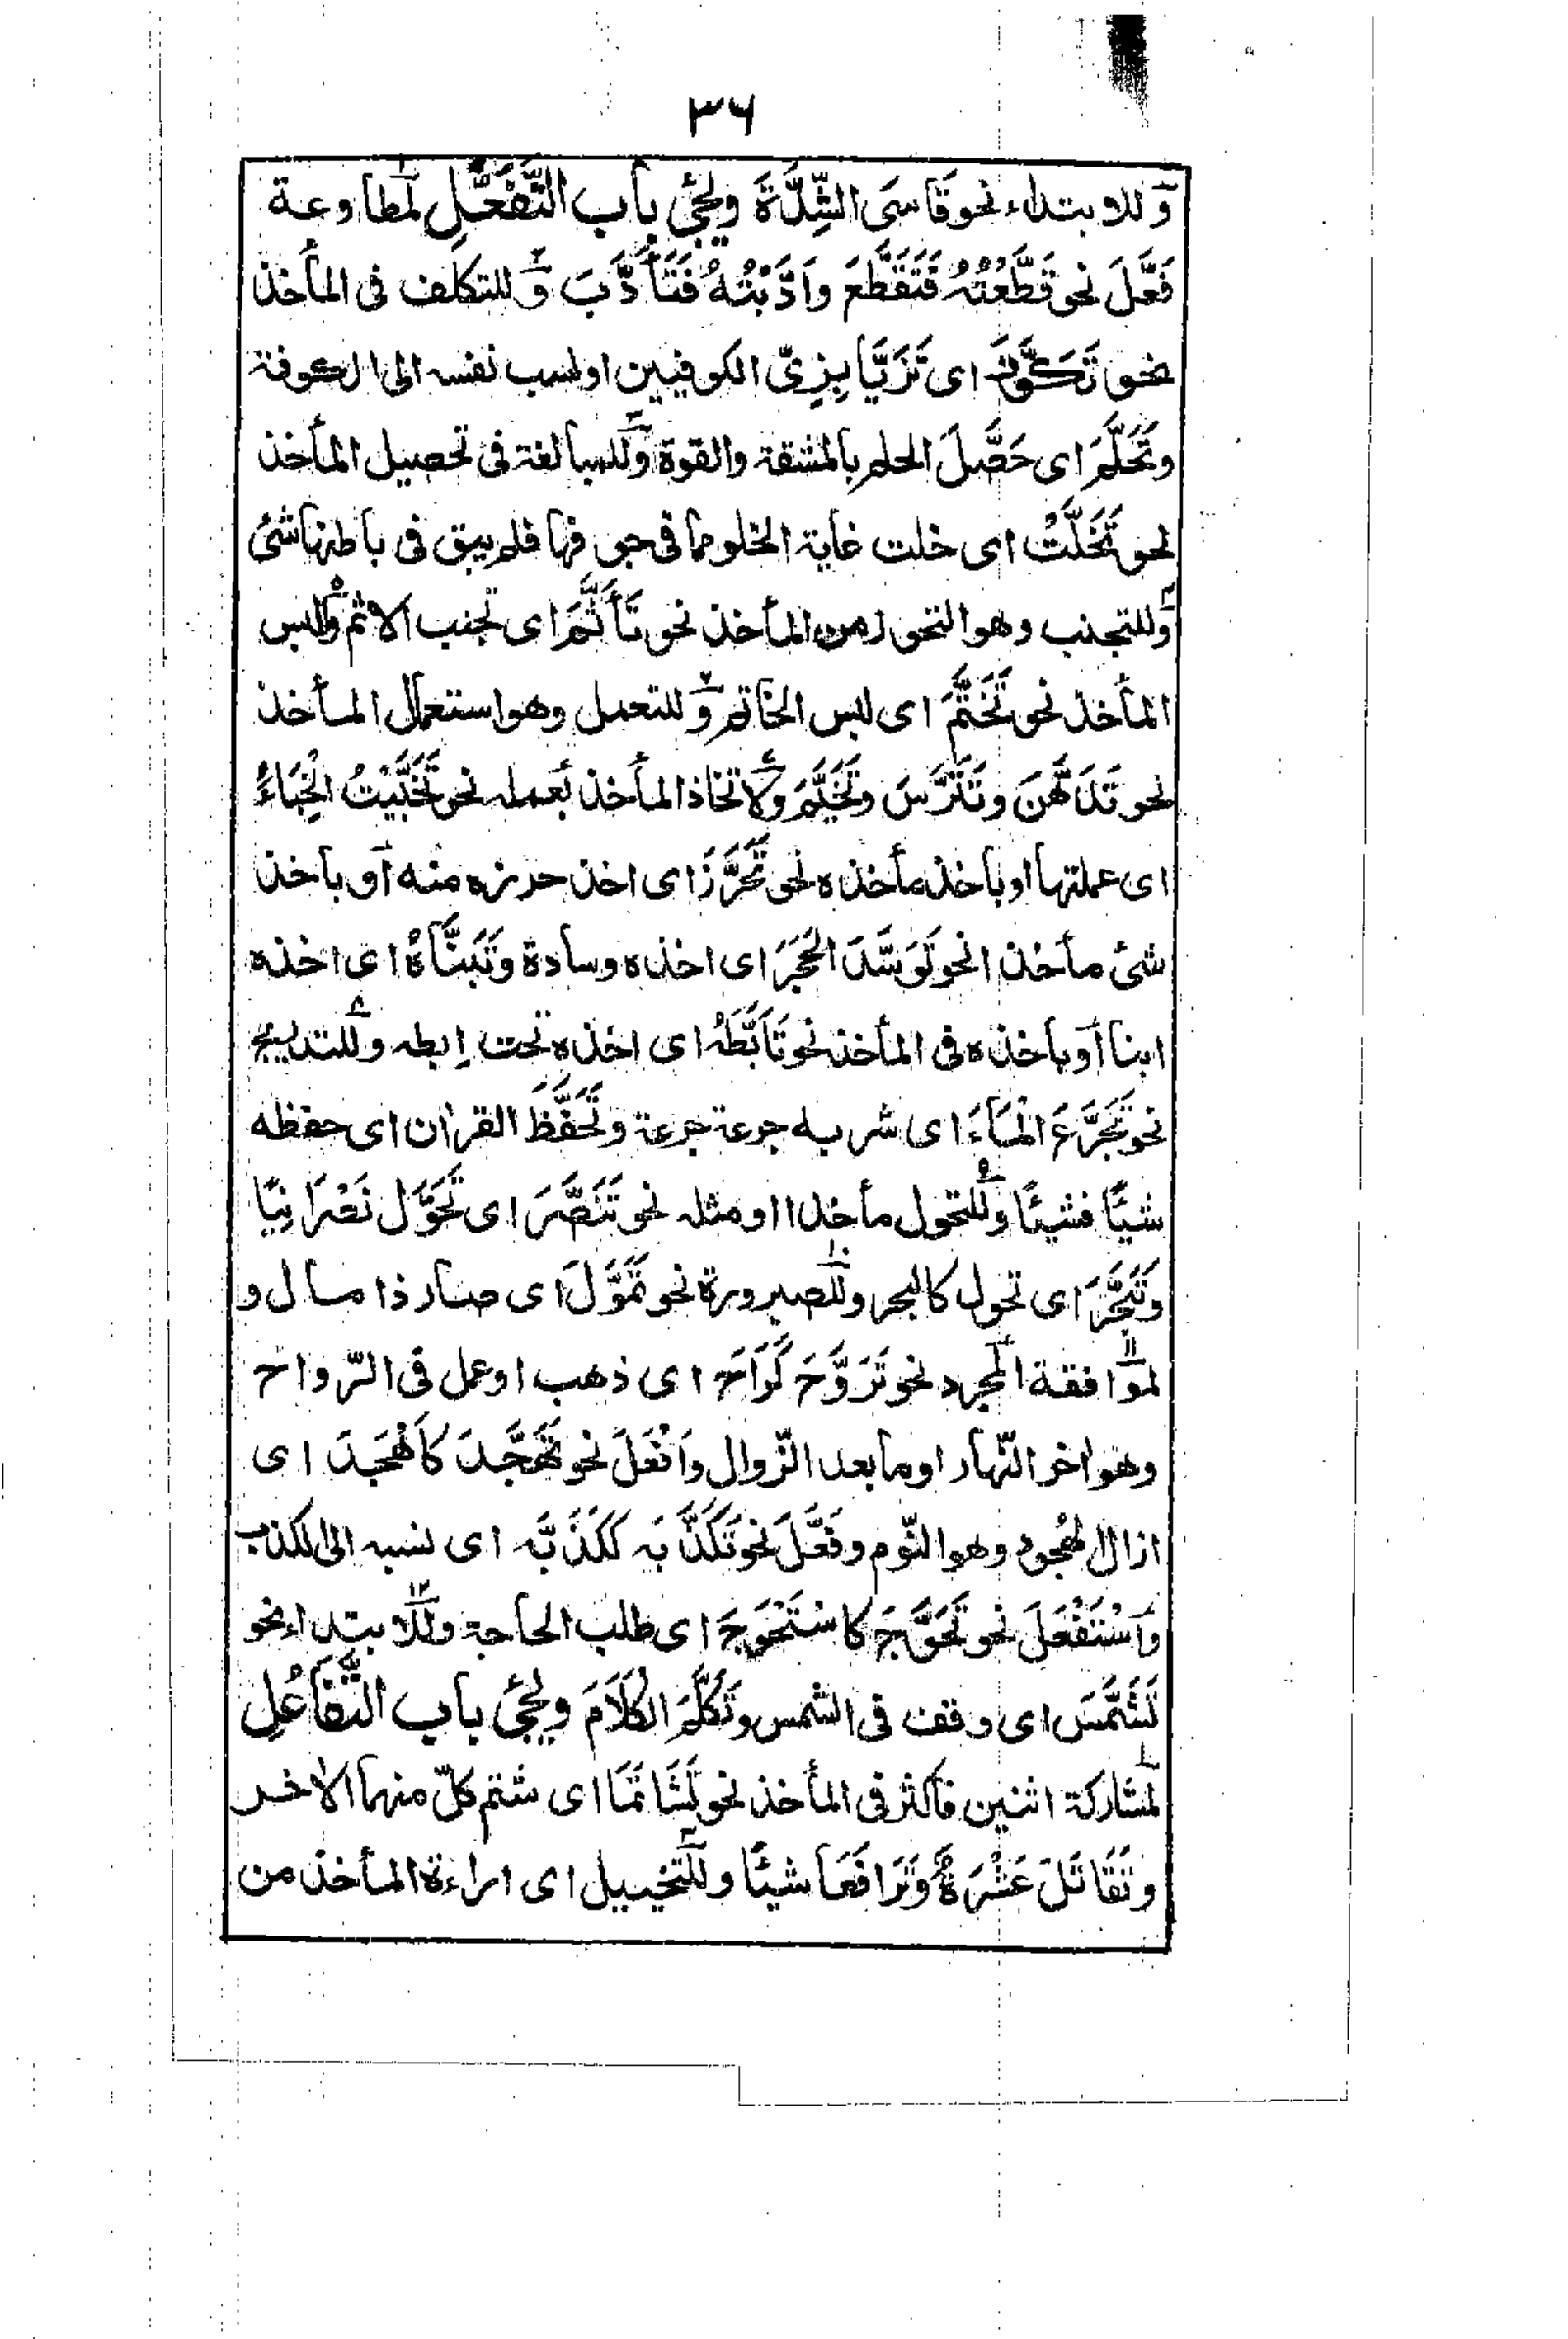 ۳۶
وللابتداء نحو قَاسَى الشِّدَّةَ ويجئ باب التَّفَعُّلِ لمطاوعة
فَعَّلَ نحو قَطَّعْتُهُ فَتَقَطَّعَ وَاَدَّبْتُهُ فَتَأَدَّبَ وللتكلف فى المأخذ
نحو تَكَوَّفَ اى تَزَيَّا بِزِىِّ الكوفيين او نسب نفسه الى الكوفة
وتَحَلَّمَ اى حَصَّلَ الحلم بالمشقة والقوة وللمبالغة فى تحصيل المأخذ
نحو تَخَلَّتْ اى خلت غاية الخلو مما فى جوفها فلم يبق فى باطنها شئ
وللتجنب وهو التحول من المأخذ نحو تَأَثَّمَ اى تجنب الاثم وللبس
المأخذ نحو تَخَتَّمَ اى لبس الخاتم وللتعمل وهو استعمال المأخذ
نحو تَدَهَّنَ وتَتَرَّسَ وتَخَيَّمَ ولاتخاذ المأخذ بعمله نحو تَخَبَّيْتُ الْخِبَاءَ
اى عملتها او باخذ مأخذه نحو تَحَرَّزَ اى اخذ حرزه منه او باخذ
شئ مأخذا نحو تَوَسَّدَ الحَجَرَ اى اخذه وسادة وَتَبَنَّاهُ اى اخذه
ابنا او بأخذه فى المأخذ نحو تَأَبَّطَهُ اى اخذه تحت اِبطه وللتدريج
نحو تَجَرَّعَ الْمَاءَ اى شربه جرعة جرعة وتَحَفَّظَ القران اى حفظه
شيئًا فشيئًا وللتحول مأخذا او مثله نحو تَنَصَّرَ اى تَحَوَّلَ نَصْرَانِيًّا
وَتَبَحَّرَ اى تحول كالبحر وللصيرورة نحو تَمَوَّلَ اى صار ذا مال و
لموافقة المجرد نحو تَرَوَّحَ كَرَاحَ اى ذهب او عمل فى الرّواح
وهو اخر النّهار او ما بعد الزّوال وَاَفْعَلَ نحو تَهَجَّدَ كَاَهْجَدَ اى
ازال الهُجود وهو النّوم وفَعَّلَ نحو تَكَذَّبَه كَكَذَّبَه اى نسبه الى الكذب
وَاسْتَفْعَلَ نحو تَحَوَّجَ كاسْتَحْوَجَ اى طلب الحاجة وللابتداء نحو
تَشَمَّسَ اى وقف فى الشمس وتَكَلَّمَ الكَلَامَ ويجئ باب التَّفَاعُلِ
لمشاركة اثنين فاكثر فى المأخذ نحو تَشَاتَمَا اى شتم كلّ منهما الاخر
وتَقَاتَلَ عَشْرَةٌ وَتَرَافَعَا شيئًا وللتخييل اى اراءة المأخذ من